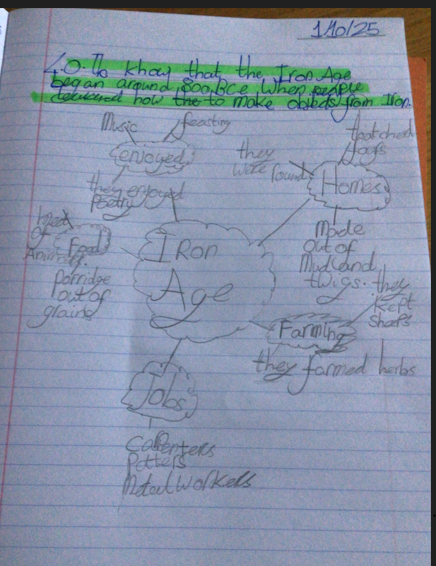 1/10/25
L.O. To know that the Iron Age
began around 800 BCE, when people
how the to make objects from Iron.
Music
feasting
enjoyed
they enjoyed
Poetry
they
were round
thatched
Homes
Made
out of
Mud and
twigs.
Iron
Age
Food
meat
of
Animals.
Porridge
out of
grains
they
kept
Farming
they farmed herbs
Jobs
Carpenters
Potters
Metal workers